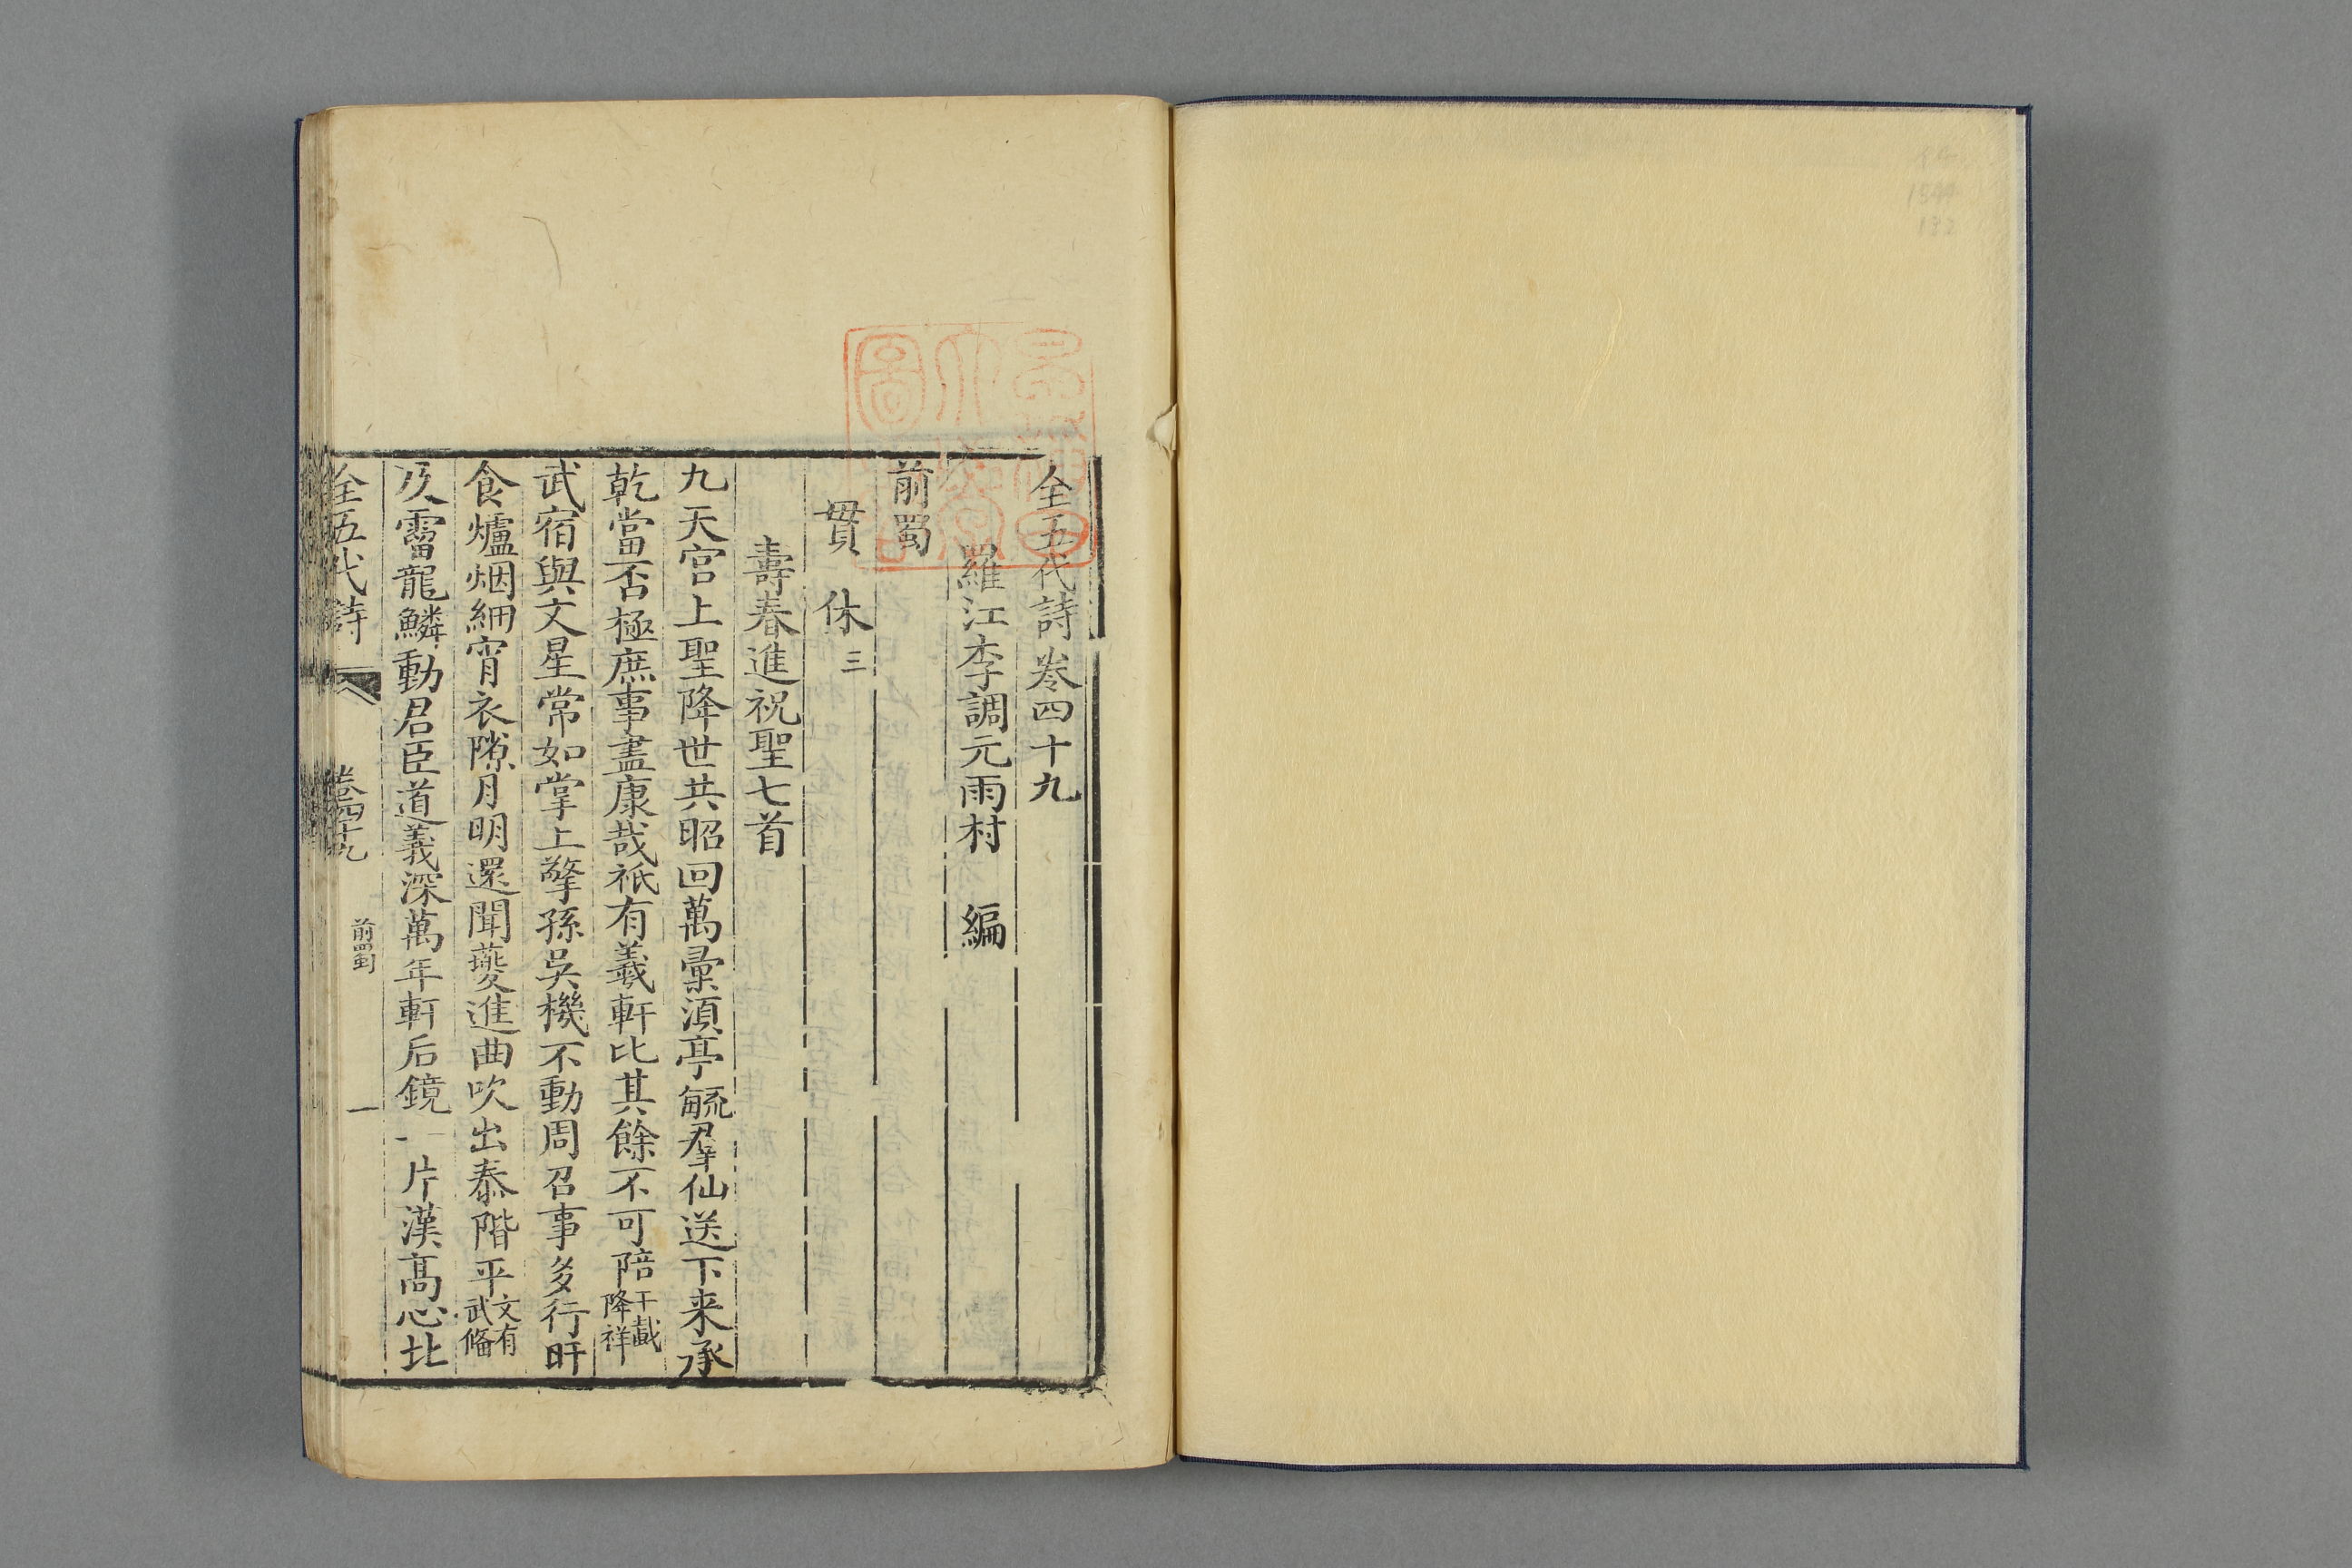 全五代詩卷四十九
羅江李調元雨村 編
前蜀
貫 休 三
壽春進祝聖七首
九天宮上聖降世共昭回萬彙須亭毓羣仙送下来承
乾當否極庶事盡康哉祇有羲軒比其餘不可陪千載降祥
武宿與文星常如掌上擎孫吳機不動周召事多行旰
食爐烟細宵衣隙月明還聞夔進曲吹出泰階平文有武備
及霤龍鱗動君臣道義深萬年軒后鏡一片漢高心北
全五代詩 卷四十九 前蜀 一